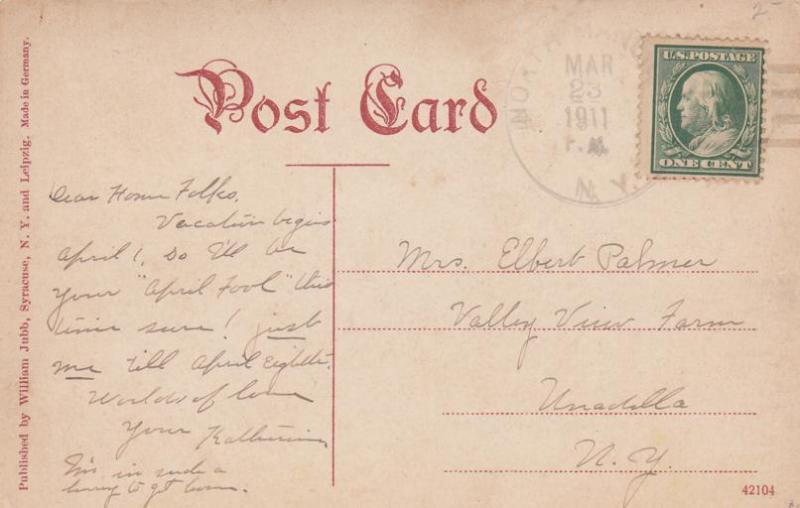 Published by William Jubb, Syracuse, N. Y. and Leipzig. Made in Germany.
Post Card
MAR
23
1911
N. Y.
U.S. POSTAGE
ONE CENT
Dear Home Folks,
Vacation begins
April 1, so I'll be
your "April Fool" this
time sure! just
me till April eighth.
Worlds of love
Your Katherine
I'm in such a
hurry to get home.
Mrs. Elbert Palmer
Valley View Farm
Unadilla
N. Y.
42104